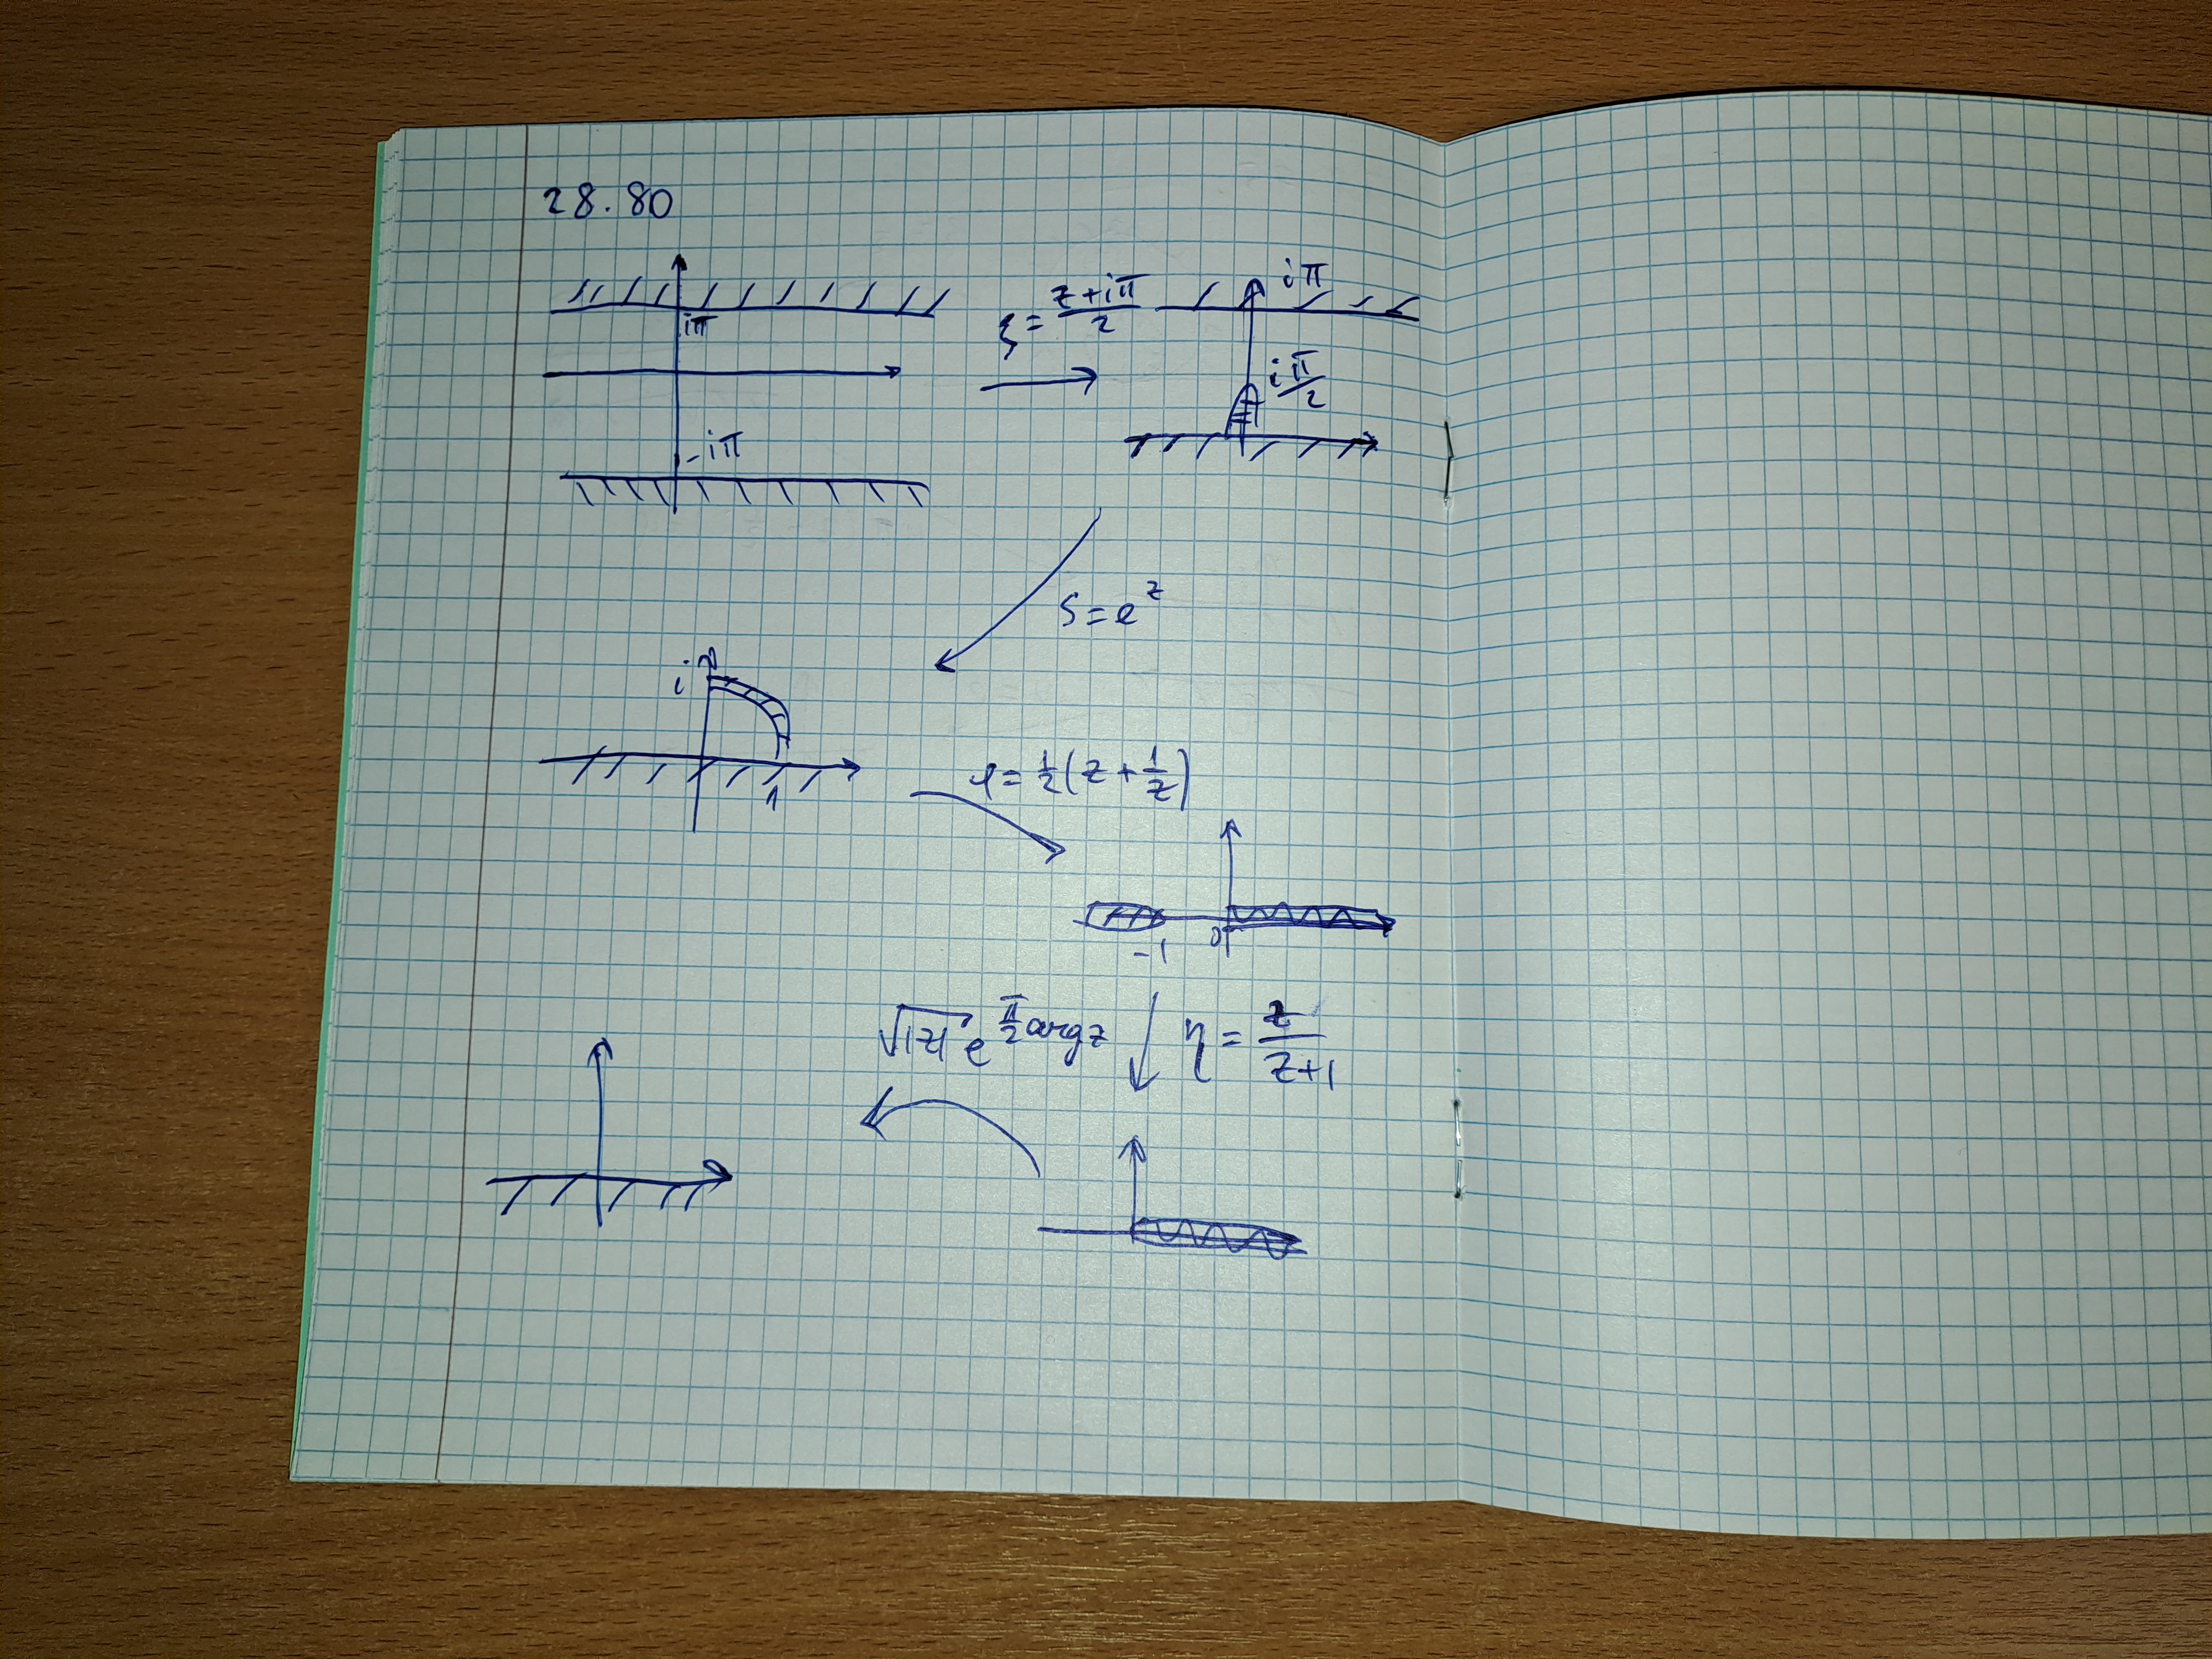 28.80
iπ
-iπ
ξ = (z+iπ)/2
iπ
i π/2
S = e^z
i
1
φ = 1/2 (z + 1/z)
-1
0
√|z| e^(π/2 arg z)
η = z/(z+1)